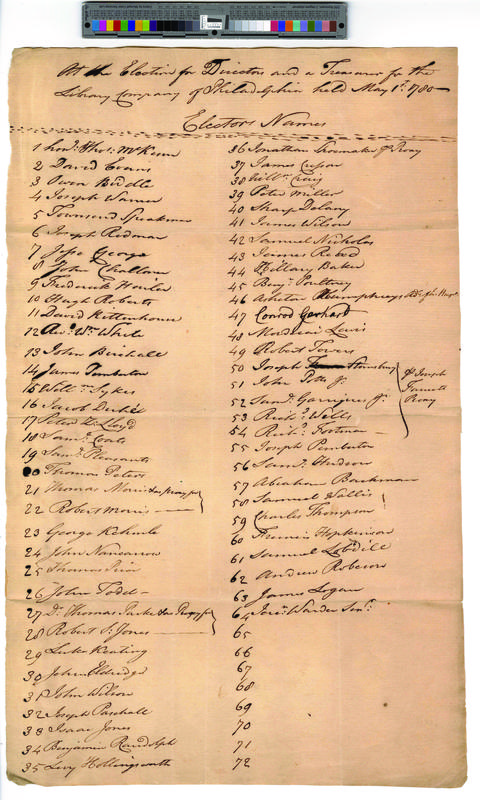 At the Election for Directors and a Treasurer for the
Library Company of Philadelphia held May 1st. 1780
Electors Names
1 Honl. Thos. McKean
2 David Evans
3 Owen Biddle
4 Joseph Warner
5 Townsend Speakman
6 Joseph Redman
7 Jesse George
8 John Challoner
9 Frederick
10 Hugh Roberts
11 David Rittenhouse
12 Revd. Wm. White
13 John Birchall
14 James Pemberton
15 Willm. Sykes
16 Jacob Duché
17 Peter Z. Lloyd
18 Saml. Coats
19 Saml. Pleasants
20 Thomas Peters
21 Thomas Morris
22 Robert Morris
23 George Kehmle
24 John
25 Thomas
26 John Todd
27 Dr. Thomas Parke
28 Robert S. Jones
29 Luke Keating
30 John Eldridge
31 John Wilson
32 Joseph Paschall
33 Isaac Jones
34 Benjamin Randolph
35 Levy Hollingsworth
36 Jonathan Shoemaker
37 James
38 Willm. Craig
39 Peter Miller
40 Sharp Delany
41 James Wilson
42 Samuel Nicholas
43 James
44 Hillary Baker
45 Benj. Poultney
46 Asheton Humphreys
47 Conrod Gerhard
48 Mordecai Lewis
49 Robert Towers
50 Joseph Stansbury
51 John Potts Jr.
52 Saml. Garrigues Jr.
53 Richd. Wells
54 Richd.
55 Joseph Pemberton
56 Saml. Hudson
57 Abraham
58 Samuel Wallis
59 Charles Thompson
60 Francis Hopkinson
61 Samuel Lobdill
62 Andrew Robeson
63 James Logan
64 Jere. Warder Senr.
65
66
67
68
69
70
71
72